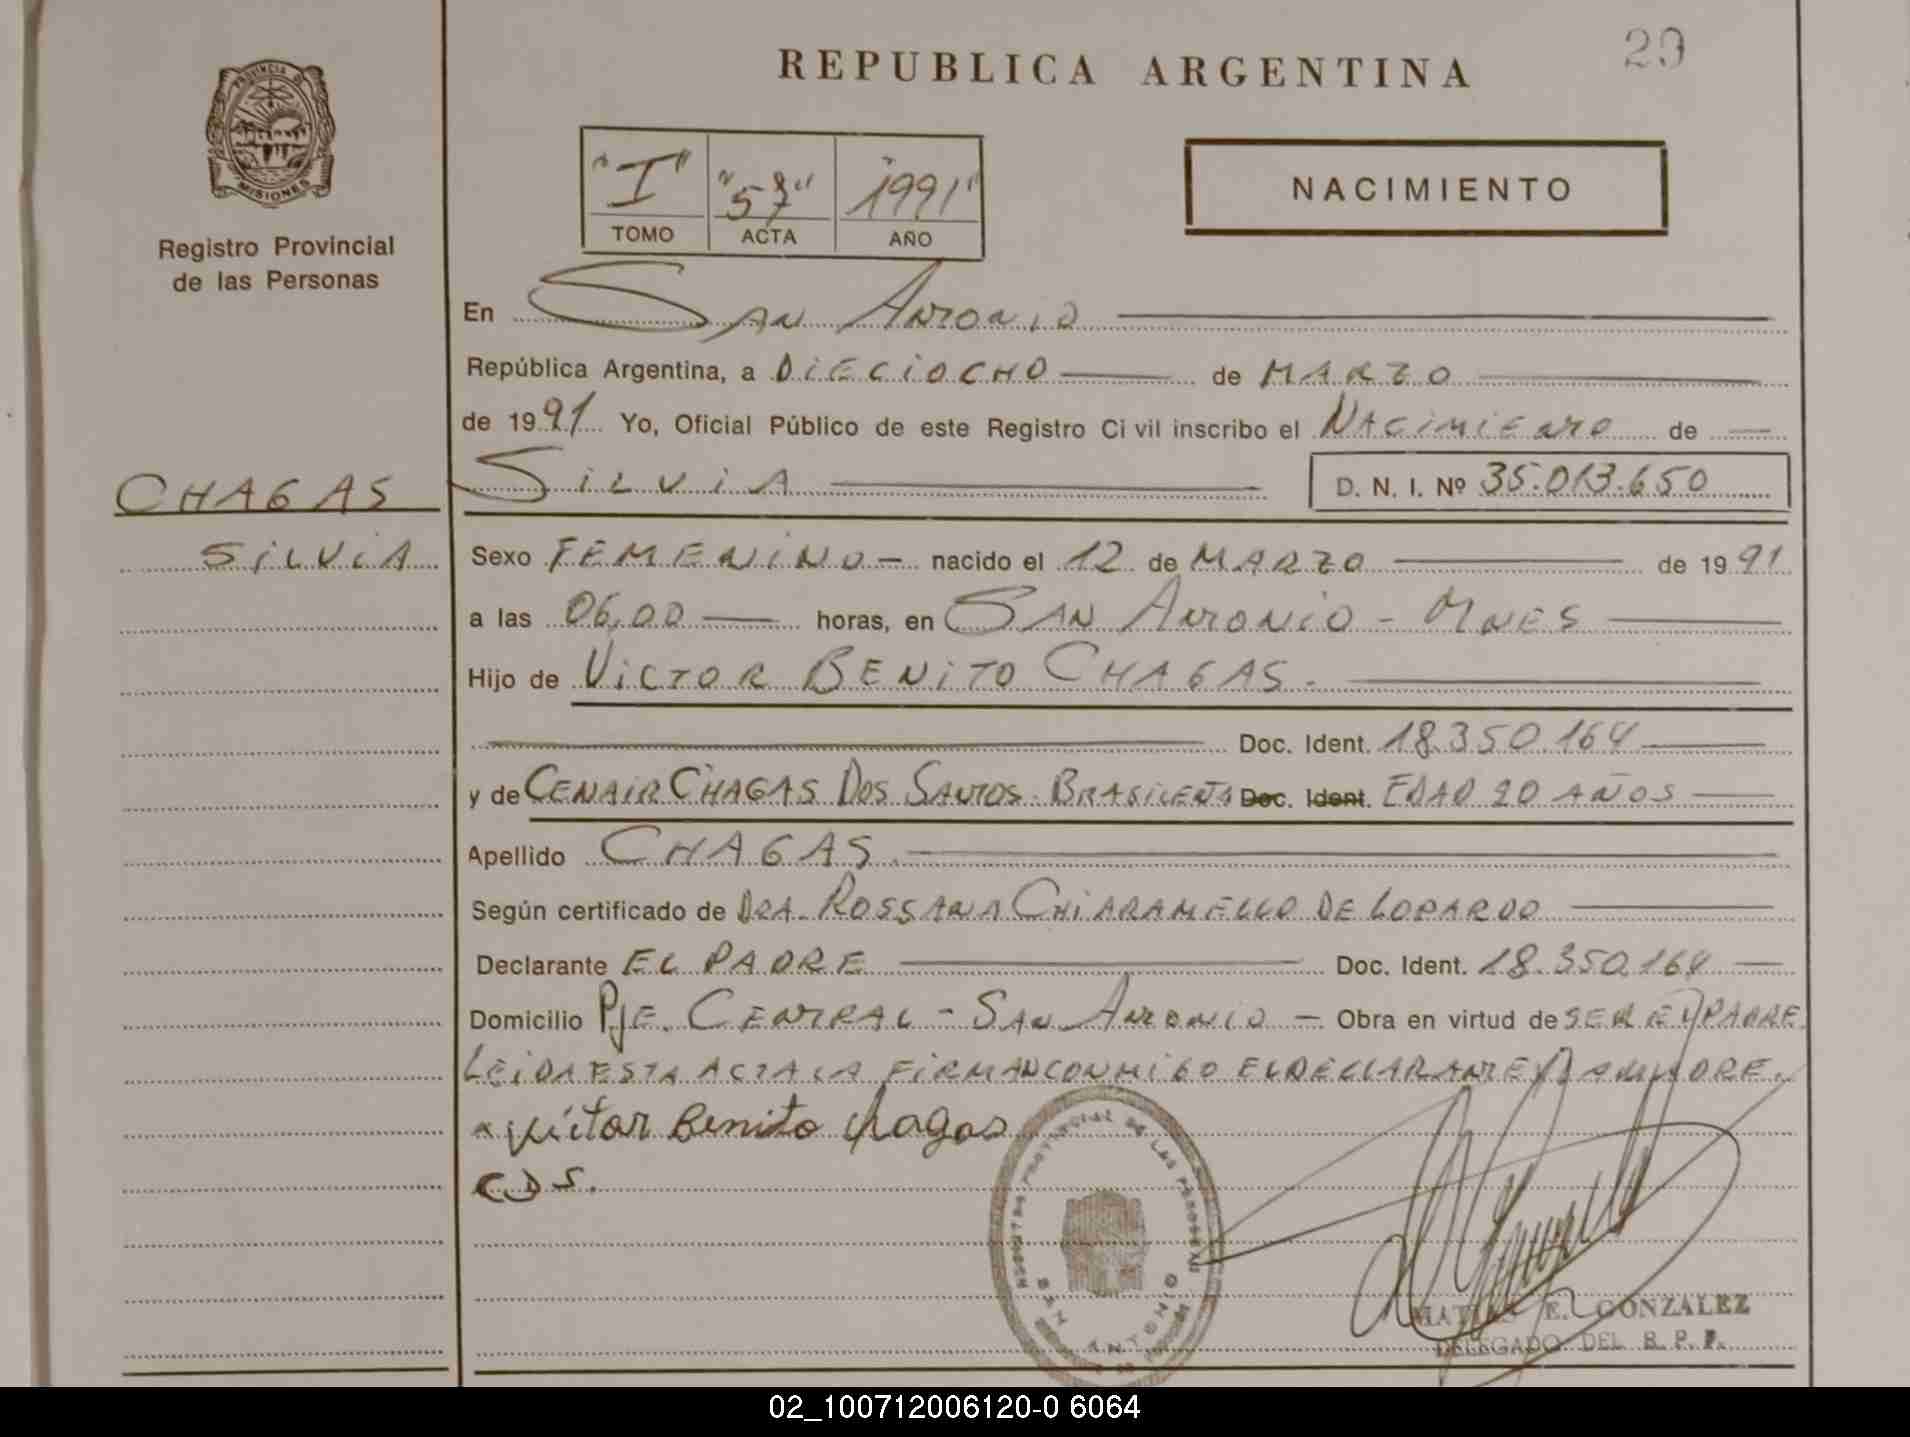 REPUBLICA ARGENTINA
29
PROVINCIA DE
MISIONES
Registro Provincial
de las Personas
"I" "57" "1991"
TOMO ACTA AÑO
NACIMIENTO
En SAN ANTONIO
República Argentina, a DIECIOCHO de MARZO
de 1991 Yo, Oficial Público de este Registro Civil inscribo el NACIMIENTO de
CHAGAS
SILVIA
SILVIA D. N. I. Nº 35.013.650
Sexo FEMENINO - nacido el 12 de MARZO de 1991
a las 06,00 horas, en SAN ANTONIO - MNES
Hijo de VICTOR BENITO CHAGAS.
Doc. Ident. 18.350.164
y de CENAIR CHAGAS DOS SANTOS. BRASILEÑA Doc. Ident. EDAD 20 AÑOS
Apellido CHAGAS.
Según certificado de DRA. ROSSANA CHIARAMELLO DE LOPARDO
Declarante EL PADRE Doc. Ident. 18.350.164
Domicilio PJE. CENTRAL - SAN ANTONIO - Obra en virtud de SER EL PADRE
LEIDA ESTA ACTA LA FIRMAN CONMIGO EL DECLARANTE Y LA MADRE.
Victor Benito Chagas
CDS.
SAN ANTONIO
MATIAS E. GONZALEZ
DELEGADO DEL R. P. P.
02_100712006120-0 6064